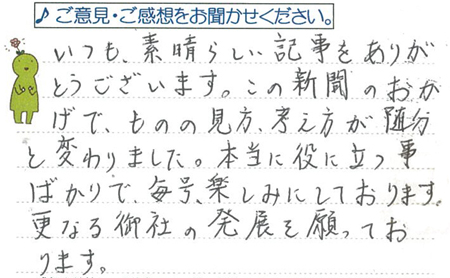 ♪ご意見・ご感想をお聞かせください。
いつも、素晴らしい記事をありが
とうございます。この新聞のおか
げで、ものの見方、考え方が随分
と変わりました。本当に役に立つ事
ばかりで、毎号、楽しみにしております。
更なる御社の発展を願ってお
ります。